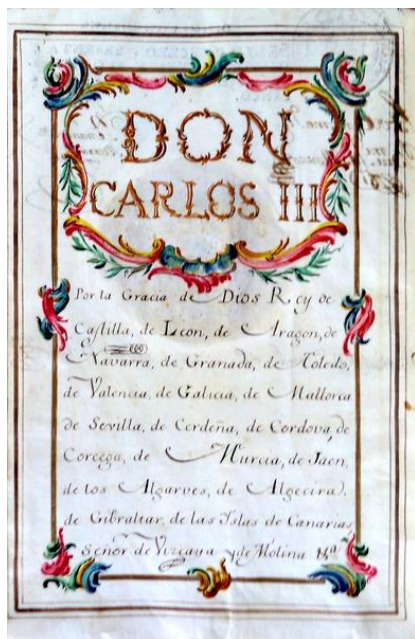 DON
CARLOS III
Por la Gracia de Dios Rey de
Castilla, de Leon, de Aragon, de
Navarra, de Granada, de Toledo,
de Valencia, de Galicia, de Mallorca
de Sevilla, de Cerdeña, de Cordova, de
Corcega, de Murcia, de Jaen,
de los Algarves, de Algecira,
de Gibraltar, de las Islas de Canarias
Señor de Vizcaya y de Molina &ª